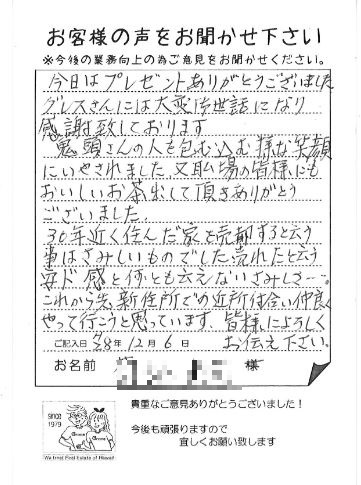 お客様の声をお聞かせ下さい
※今後の業務向上の為ご意見をお聞かせください。
今日はプレゼントありがとうございました
グレスさんには大変お世話になり
感謝致しております
鬼頭さんの人を包む込む様な笑顔
にいやされました又職場の皆様にも
おいしいお茶出して頂きありがとう
ございました
30年近く住んだ家を売却すると云う
事はさみしいものでした売れたと云う
安ド感と何とも云えないさみしさ…。
これから先、新住所での近所付合い仲良く
やって行こうと思っています、皆様によろしく
お伝え下さい。
ご記入日 28年12月6日
お名前 様
since
1979
貴重なご意見ありがとうございました！
今後も頑張りますので
宜しくお願い致します